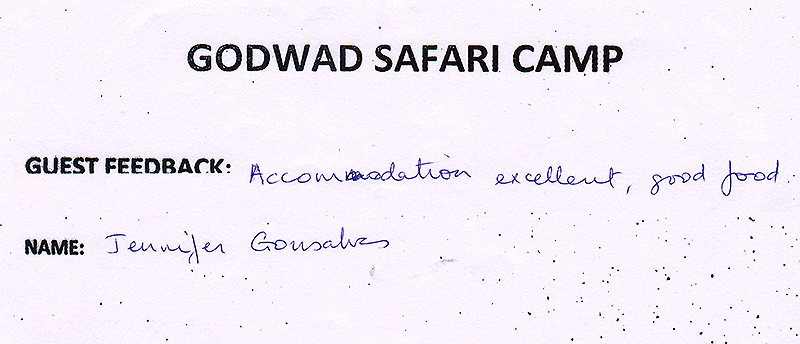 GODWAD SAFARI CAMP
GUEST FEEDBACK: Accommodation excellent, good food.
NAME: Jennifer Gonsalves